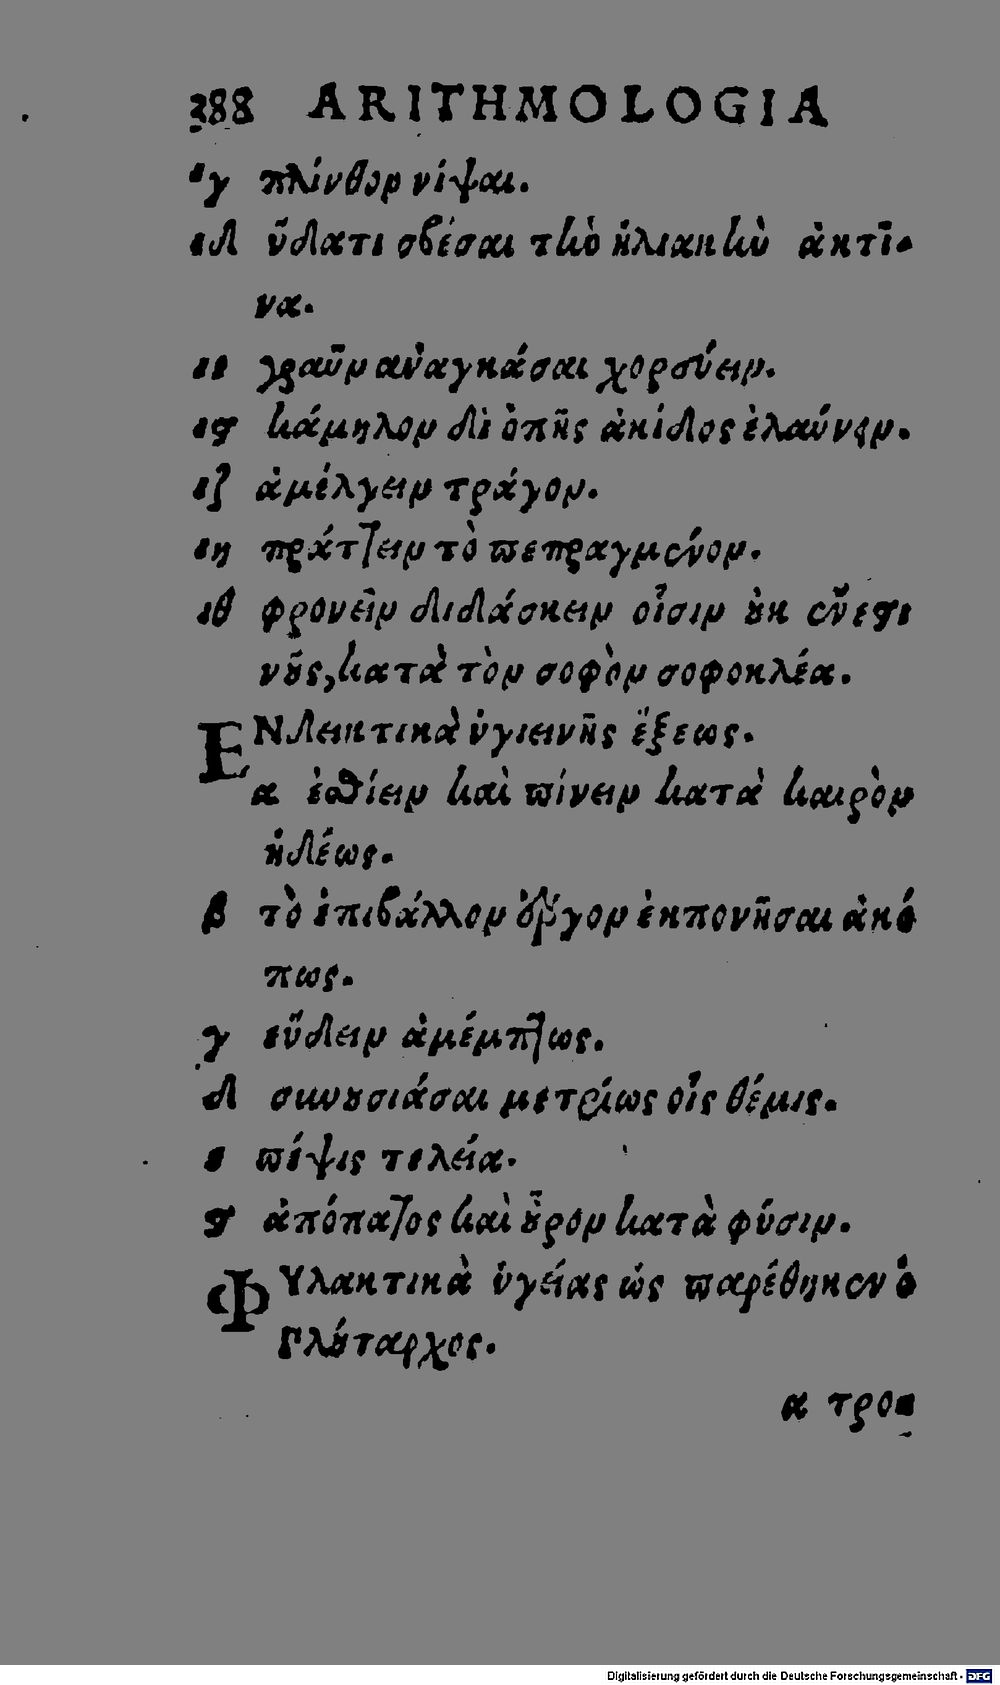 288 ARITHMOLOGIA
ιγ πλίνθον νίψαι.
ιδ ὕδατι σβέσαι τὴν ἡλιακὴν ἀκτῖ-
να.
ιε γραῦν ἀναγκάσαι χορεύειν.
ιϛ κάμηλον δι ὀπῆς ἀκίδος ἐλαύνειν.
ιζ ἀμέλγειν τράγον.
ιη πράττειν τὸ πεπραγμένον.
ιθ φρονεῖν διδάσκειν οἷσιν οὐκ ἔνεστι
νοῦς, κατὰ τὸν σοφὸν σοφοκλέα.
ΕΝδεικτικὰ ὑγιεινῆς ἕξεως.
α ἐσθίειν καὶ πίνειν κατὰ καιρὸν
ἡδέως.
β τὸ ἐπιβάλλον ἔργον ἐκπονῆσαι ἀκό
πως.
γ εὕδειν ἀμέμπτως.
δ συνουσιάσαι μετρίως οἷς θέμις.
ε πέψις τελεία.
ϛ ἀπόπατος καὶ οὖρον κατὰ φύσιν.
ΦΥλακτικὰ ὑγείας ὡς παρέθηκεν ὁ
Πλούταρχος.
α τρο-
Digitalisierung gefördert durch die Deutsche Forschungsgemeinschaft - DFG